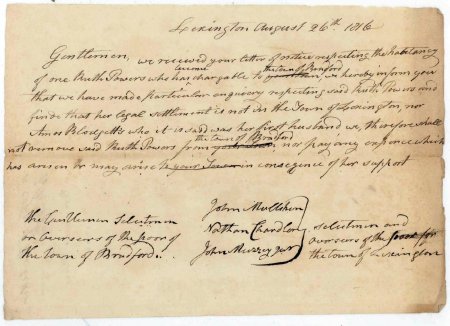 Lexington August 26th 1816
Gentlemen, we received your letter of notice respecting the Inhabitancy
of one Ruth Powers who has become chargable to the town of Bradford we hereby inform you
that we have made particular enquiery respecting said Ruth Powers and
finde that her legal settlement is not in the Town of Lexington, nor
Amos Blodgett's who it is said was her first husband we, therefore shall
not remove said Ruth Powers from the town of Bradford nor pay any expence which
has arisen or may arise to your Town in conseqence of her support
The Gentlemen Selectmen
or Overseers of the Poor of
the Town of Bradford..
John Mulliken
Nathan Chandler
John Muzzey Jur
selectmen and
overseers of the poor for
the town of Lexington